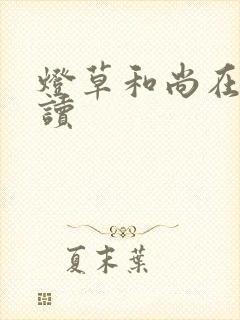 燈草和尚在
讀
夏末葉